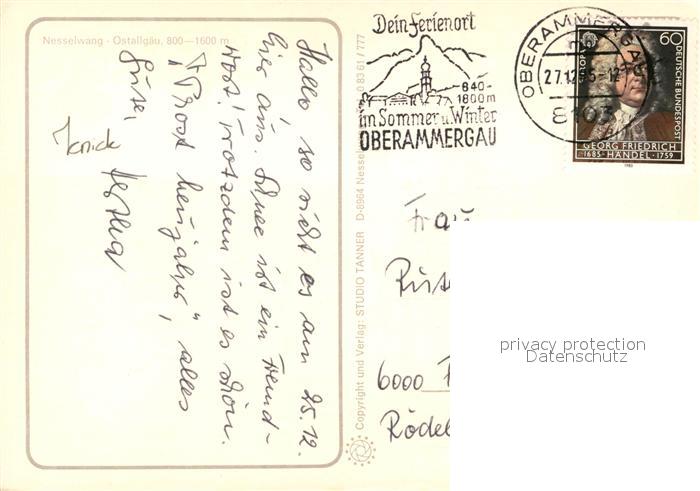 Nesselwang - Ostallgäu, 800—1600 m
Hallo! so sieht es am 25.12.
hier aus. Schnee ist ein Fremd-
wort! Trotzdem ist es schön.
"Prost Neujahr", alles
Gute,
Knick
Copyright und Verlag: STUDIO TANNER D-8964 Nesselwang 8361/777
Dein Ferienort
840-
1800m
im Sommer u. Winter
OBERAMMERGAU
OBERAMMERGAU
27.12.85-12
8103
60
DEUTSCHE BUNDESPOST
GEORG FRIEDRICH
1685 HÄNDEL · 1759
1985
Frau
6000
Rödel
privacy protection
Datenschutz